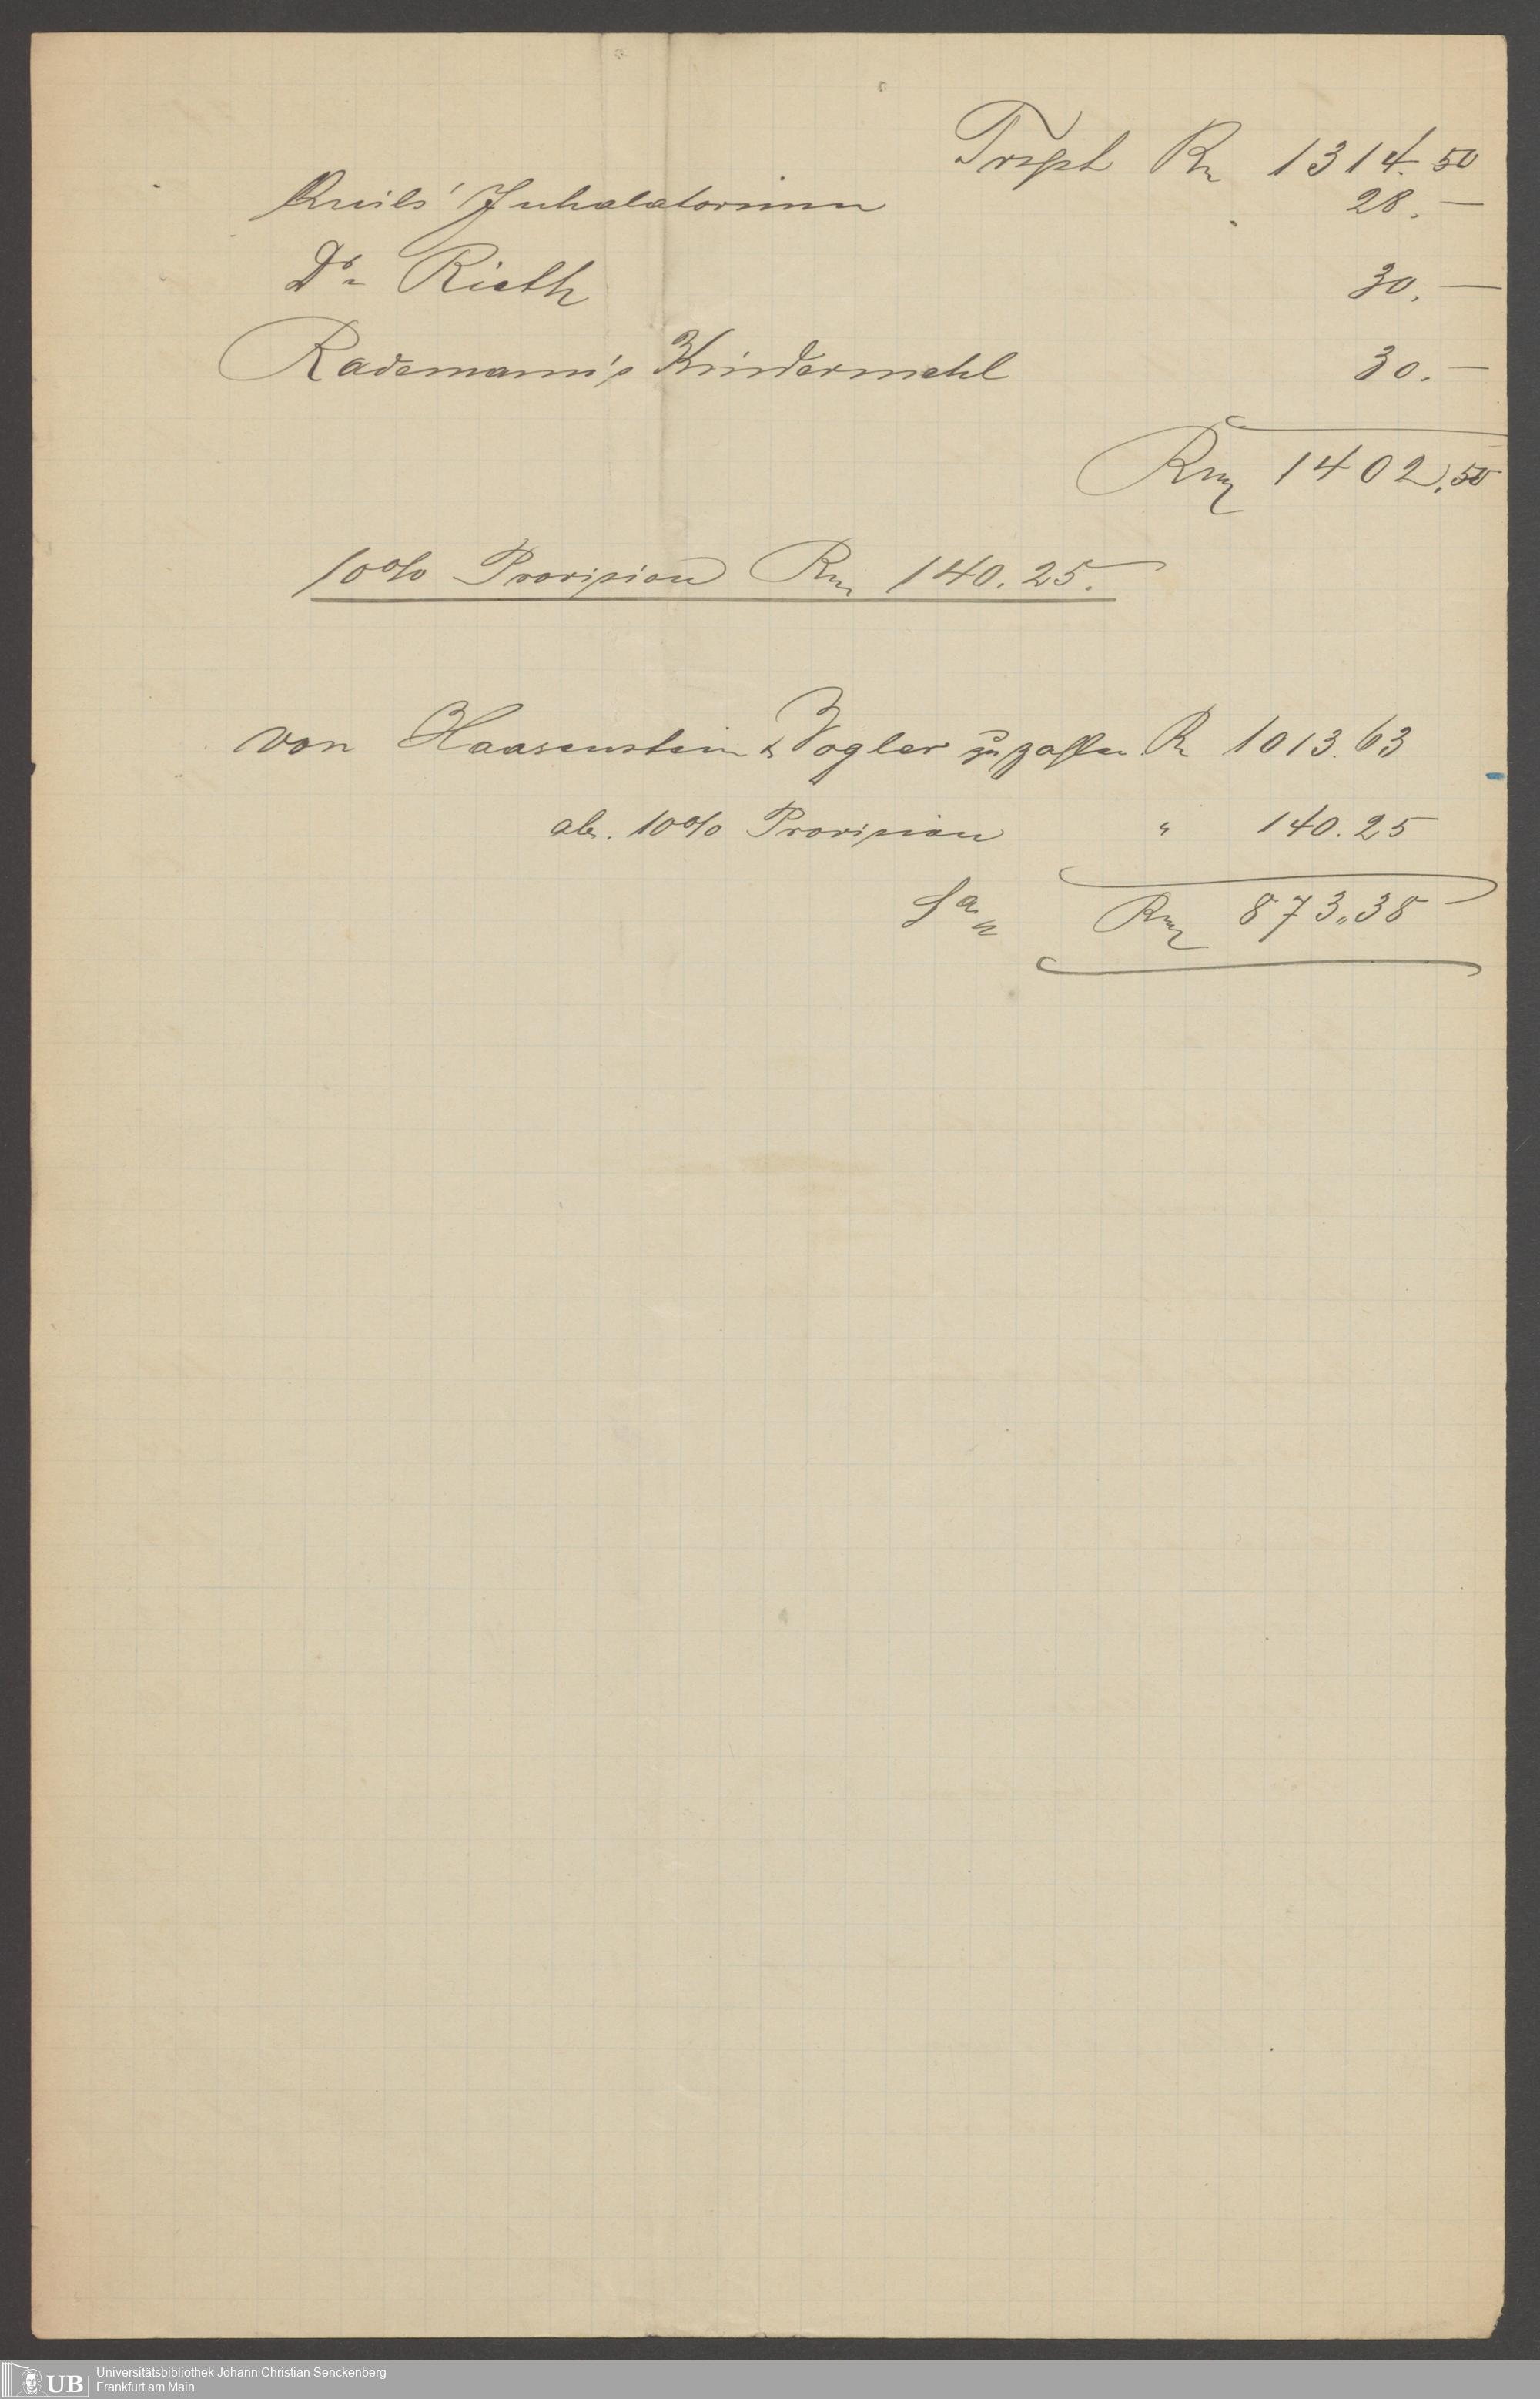 Trspt Rm 1314.50
Inhalatorium 28.—
Dr. Rieth 30.—
Rademann's Kindermehl 30.—
Rm 1402.50
10% Provision Rm 140.25.
von Haasenstein & Vogler zu zahlen Rm 1013.63
ab. 10% Provision " 140.25
Sa. Rm 873.38
UB Universitätsbibliothek Johann Christian Senckenberg
Frankfurt am Main